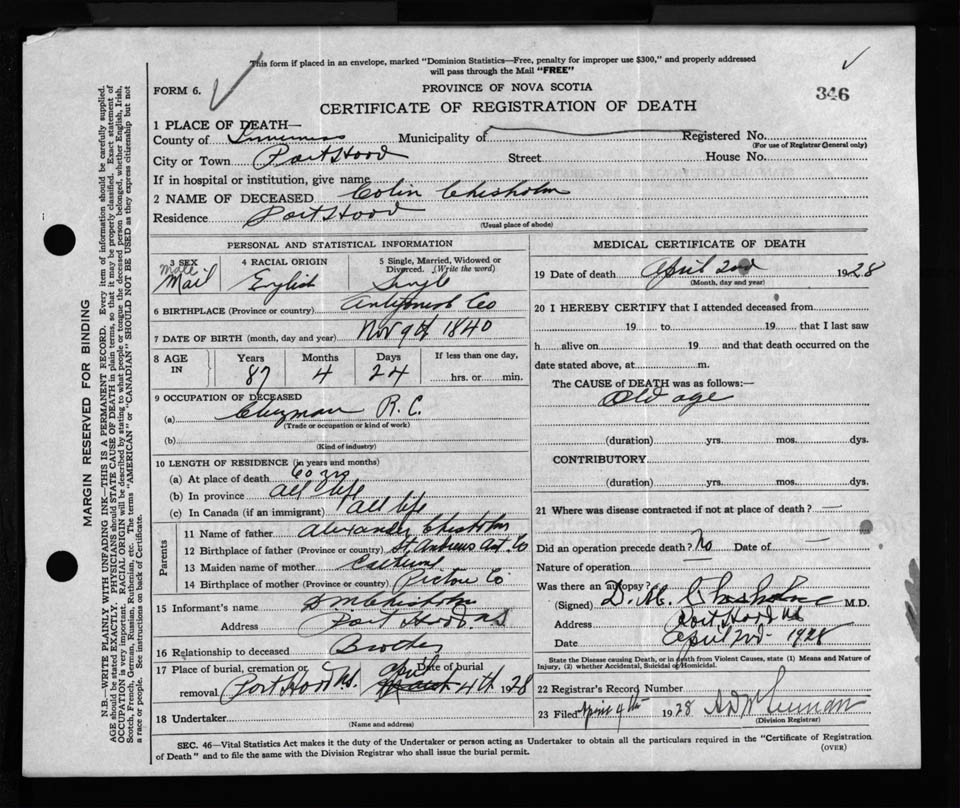 This form if placed in an envelope, marked "Dominion Statistics—Free, penalty for improper use $300," and properly addressed
will pass through the Mail "FREE"
FORM 6.
PROVINCE OF NOVA SCOTIA
346
CERTIFICATE OF REGISTRATION OF DEATH
1 PLACE OF DEATH—
County of Inverness Municipality of Registered No.
(For use of Registrar General only)
City or Town Port Hood Street House No.
If in hospital or institution, give name
2 NAME OF DECEASED Colin Chisholm
Residence Port Hood
(Usual place of abode)
PERSONAL AND STATISTICAL INFORMATION
3 SEX
Male
Mail
4 RACIAL ORIGIN
English
5 Single, Married, Widowed or Divorced. (Write the word)
Single
6 BIRTHPLACE (Province or country) Antigonish Co
7 DATE OF BIRTH (month, day and year) Nov 9th 1840
8 AGE IN
Years Months Days If less than one day,
87 4 24 hrs. or min.
9 OCCUPATION OF DECEASED
(a) Clergman R. C.
(Trade or occupation or kind of work)
(b)
(Kind of industry)
10 LENGTH OF RESIDENCE (in years and months)
(a) At place of death 60 yrs
(b) In province all life
(c) In Canada (if an immigrant) all life
Parents
11 Name of father Alexander Chisholm
12 Birthplace of father (Province or country) St. Andrews Ant. Co
13 Maiden name of mother
14 Birthplace of mother (Province or country) Pictou Co
15 Informant's name D M Chisholm
Address Port Hood N S
16 Relationship to deceased Brother
17 Place of burial, cremation or removal Port Hood N.S. Date of burial April 4th 1928
18 Undertaker
(Name and address)
MEDICAL CERTIFICATE OF DEATH
19 Date of death April 2nd 1928
(Month, day and year)
20 I HEREBY CERTIFY that I attended deceased from
19 to 19 that I last saw
h alive on 19 and that death occurred on the
date stated above, at m.
The CAUSE OF DEATH was as follows:—
Old age
(duration) yrs. mos. dys.
CONTRIBUTORY
(duration) yrs. mos. dys.
21 Where was disease contracted if not at place of death? —
Did an operation precede death? No Date of —
Nature of operation
Was there an autopsy?
(Signed) D. M. Chisholm M.D.
Address Port Hood N.S.
Date April 2nd 1928
State the Disease causing Death, or in death from Violent Causes, state (1) Means and Nature of
Injury, (2) whether Accidental, Suicidal or Homicidal.
22 Registrar's Record Number
23 Filed April 9th 1928
(Division Registrar)
SEC. 46—Vital Statistics Act makes it the duty of the Undertaker or person acting as Undertaker to obtain all the particulars required in the "Certificate of Registration
of Death" and to file the same with the Division Registrar who shall issue the burial permit.
(OVER)
MARGIN RESERVED FOR BINDING
N.B.—WRITE PLAINLY WITH UNFADING INK—THIS IS A PERMANENT RECORD. Every item of information should be carefully supplied.
AGE should be stated EXACTLY. PHYSICIANS should STATE CAUSE OF DEATH in plain terms, so that it may be properly classified. Exact statement of
OCCUPATION is very important. RACIAL ORIGIN will be described by stating to what people or tongue the deceased person belonged, whether English, Irish,
Scotch, French, German, Russian, Ruthenian, etc. The terms "AMERICAN" or "CANADIAN" SHOULD NOT BE USED as they express citizenship but not
a race or people. See instructions on back of Certificate.